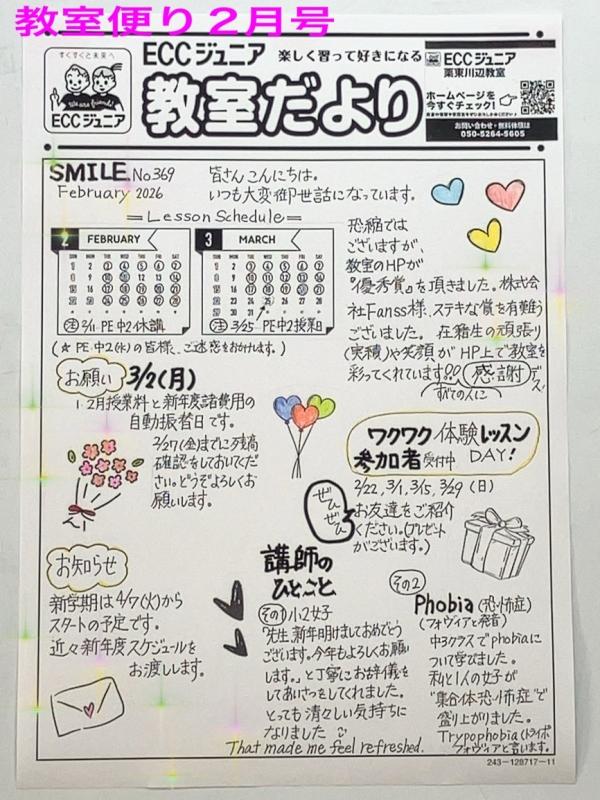 教室便り2月号
すくすくと未来へ
We are friends!
ECCジュニア
ECCジュニア 楽しく習って好きになる
教室だより
ECCジュニア
栗東川辺教室
ホームページを
今すぐチェック!
お問い合わせ・無料体験は
050-5264-5605
SMILE No.369
February 2026
皆さんこんにちは。
いつも大変御世話になっています。
=Lesson Schedule=
2 FEBRUARY
SUN MON TUE WED THU FRI SAT
1 2 3 4 5 6 7
8 9 10 11 12 13 14
15 16 17 18 19 20 21
22 23 24 25 26 27 28
注 2/11 PE中2休講
3 MARCH
SUN MON TUE WED THU FRI SAT
1 2 3 4 5 6 7
8 9 10 11 12 13 14
15 16 17 18 19 20 21
22 23 24 25 26 27 28
29 30 31
注 3/25 PE中2授業日
(☆PE中2(水)の皆様、ご迷惑をおかけします。)
恐縮では
ございますが、
教室のHPが
"優秀賞"を頂きました。株式会
社Fanss様、ステキな賞を有難う
ございました。在籍生の頑張り
(実績)や笑顔がHP上で教室を
彩ってくれています!!感謝デス
すべての人に
お願い 3/2(月)
1・2月授業料と新年度諸費用の
自動振替日です。
2/27(金)までに残高
確認をしておいてくだ
さい。どうぞよろしくお
願いします。
ワクワク体験レッスン
参加者受付中 DAY!
2/22,3/1,3/15,3/29(日)
ぜひぜひ
お友達をご紹介
ください。(プレゼント
がございます。)
お知らせ
新学期は4/7(火)から
スタートの予定です。
近々新年度スケジュールを
お渡しします。
講師の
ひとこと
その1 小2女子
「先生、新年明けましておめでとう
ございます。今年もよろしくお願い
します。」と丁寧にお辞儀を
してあいさつをしてくれました。
とっても清々しい気持ちに
なりました
That made me feel refreshed.
その2
Phobia(恐怖症)
(フォウィアと発音)
中3クラスでphobiaに
ついて学びました。
私と1人の女子が
"集合体恐怖症"で
盛り上がりました。
Trypophobia(トライポ
フォヴィアと言います。
243-128717-11